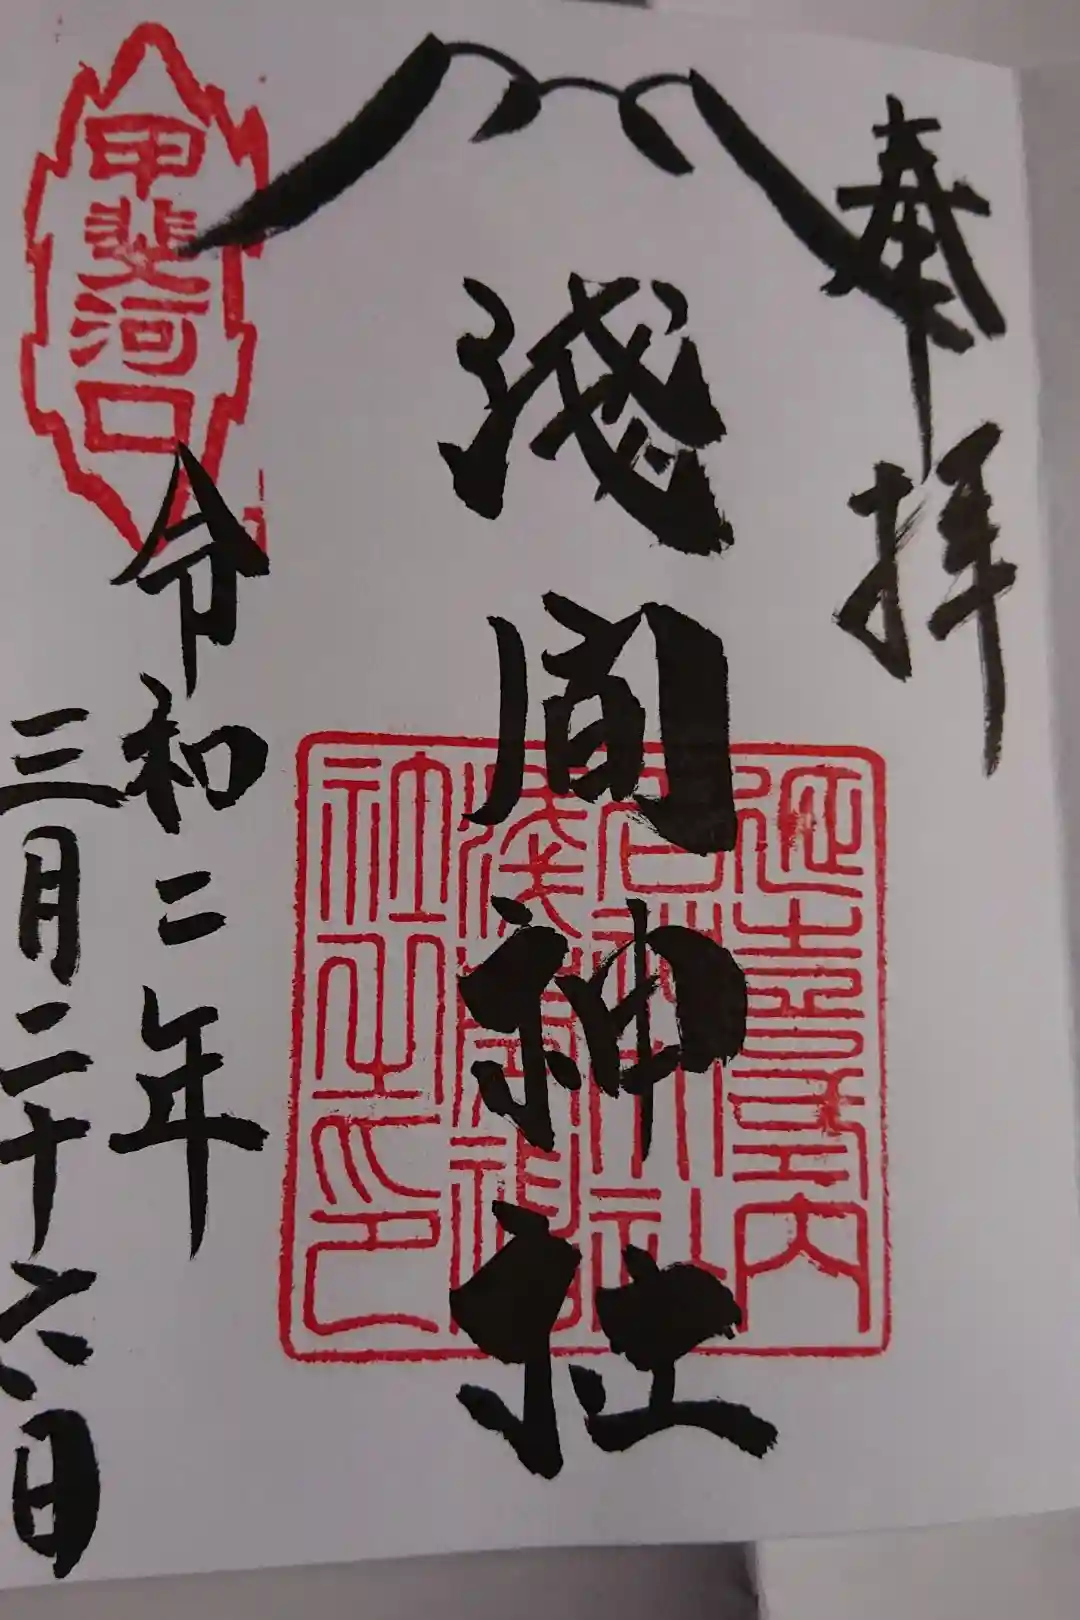 奉拝
淺间神社
延喜式内
名神大社
淺間神
社之印
甲斐河口
令和二年
三月二十六日